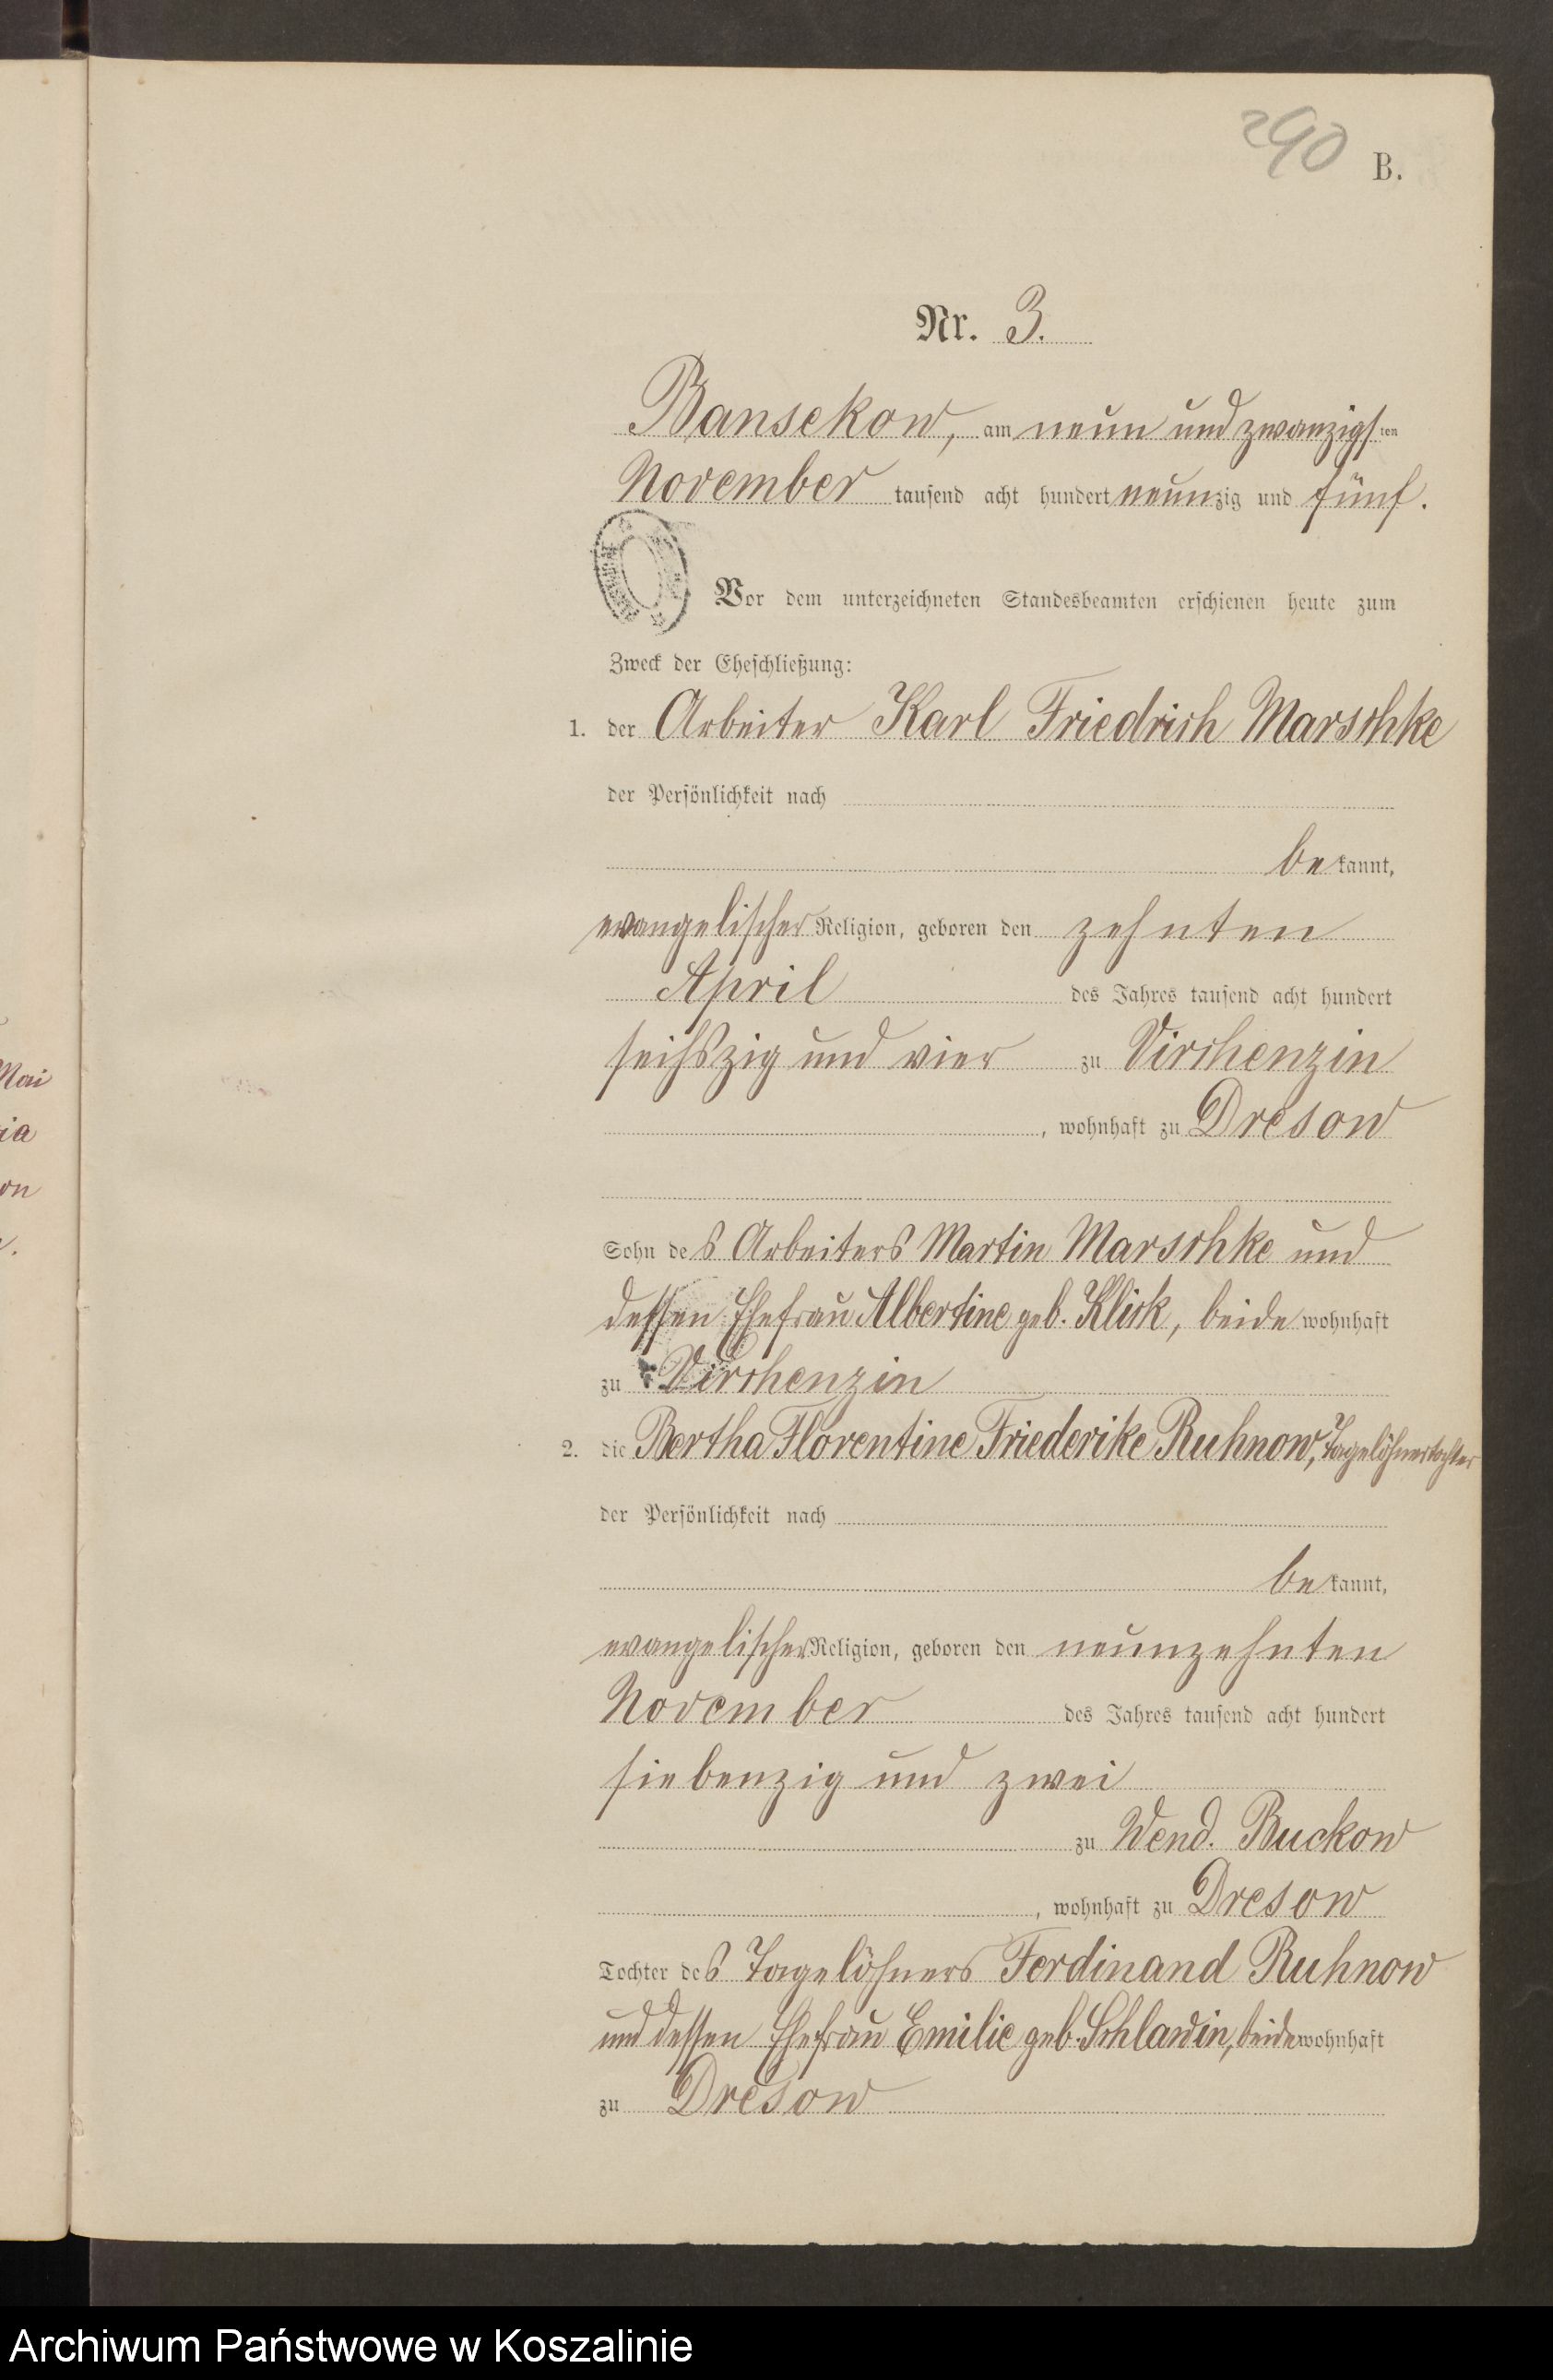 290
B.
Nr. 3.
Bansekow, am neun und zwanzigsten
November tausend acht hundert neunzig und fünf.
Vor dem unterzeichneten Standesbeamten erschienen heute zum
Zweck der Eheschließung:
1. der Arbeiter Karl Friedrich Marschke
der Persönlichkeit nach
bekannt,
evangelischer Religion, geboren den zehnten
April des Jahres tausend acht hundert
sechszig und vier zu Virchenzin
, wohnhaft zu Dresow
Sohn des Arbeiters Martin Marschke und
dessen Ehefrau Albertine geb. Klick, beide wohnhaft
zu Virchenzin
2. die Bertha Florentine Friederike Ruhnow, Tagelöhnertochter
der Persönlichkeit nach
bekannt,
evangelischer Religion, geboren den neunzehnten
November des Jahres tausend acht hundert
siebenzig und zwei
zu Wend. Buckow
, wohnhaft zu Dresow
Tochter des Tagelöhners Ferdinand Ruhnow
und dessen Ehefrau Emilie geb. Schlawin, beide wohnhaft
zu Dresow
Mai
ia
on
Archiwum Państwowe w Koszalinie